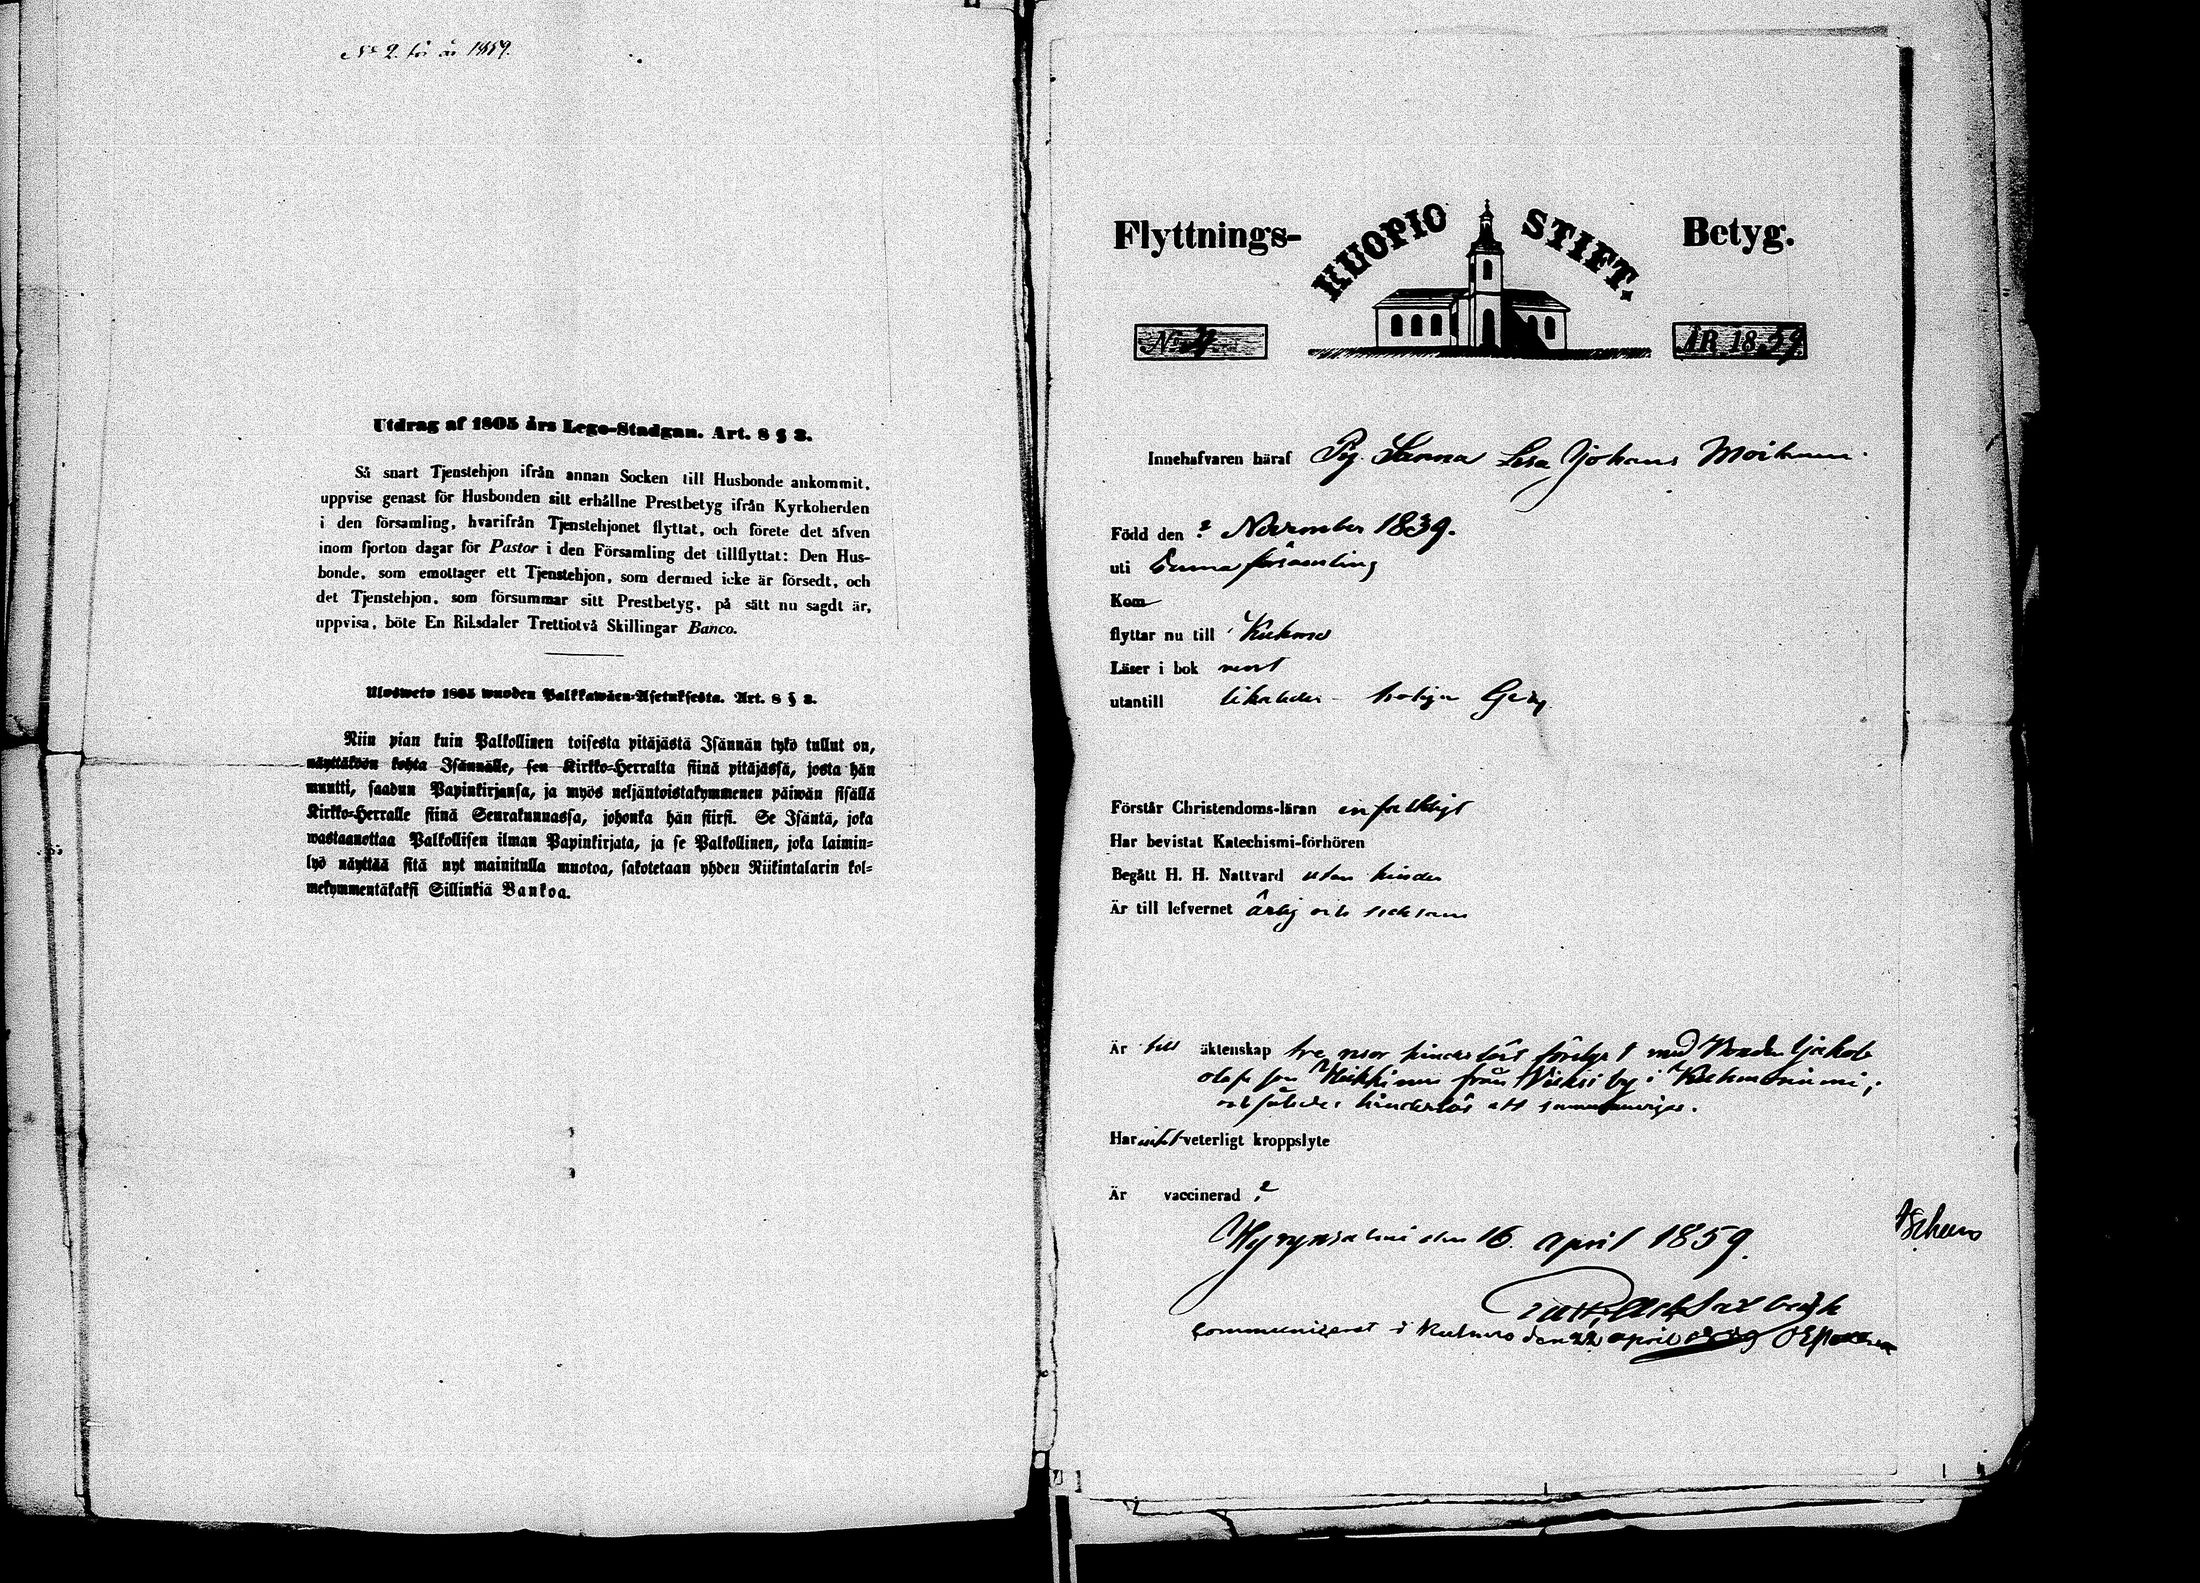 No 2 för år 1859.
Utdrag af 1805 års Lego-Stadgan. Art. 8 § 3.
Så snart Tjenstehjon ifrån annan Socken till Husbonde ankommit,
uppvise genast för Husbonden sitt erhållne Prestbetyg ifrån Kyrkoherden
i den församling, hvarifrån Tjenstehjonet flyttat, och förete det äfven
inom fjorton dagar för Pastor i den Församling det tillflyttat: Den Hus-
bonde, som emottager ett Tjenstehjon, som dermed icke är försedt, och
det Tjenstehjon, som försummar sitt Prestbetyg, på sätt nu sagdt är,
uppvisa, böte En Riksdaler Trettiotvå Skillingar Banco.
Ulosweto 1805 wuoden Palkkawäen-Asetuksesta. Art. 8 § 3.
Niin pian kuin Palkollinen toisesta pitäjästä Isännän tykö tullut on,
näyttäköön kohta Isännälle, sen Kirkko-Herralta siinä pitäjässä, josta hän
muutti, saadun Papinkirjansa, ja myös neljäntoistakymmenen päiwän sisällä
Kirkko-Herralle siinä Seurakunnassa, johonka hän siirsi. Se Isäntä, joka
wastaanottaa Palkollisen ilman Papinkirjata, ja se Palkollinen, joka laimin-
lyö näyttää sitä nyt mainitulla muotoa, sakotetaan yhden Riikintalarin kol-
mekymmentäkaksi Sillinkiä Bankoa.
Flyttnings- KUOPIO STIFT. Betyg.
ÅR 1859
Innehafvaren häraf Pig. Sanna Lisa Johans Moilanen
Född den ? November 1839.
uti denna församling
Kom
flyttar nu till Kuhmo
Läser i bok
utantill likaledes
Förstår Christendoms-läran enfaldigt
Har bevistat Katechismi-förhören
Begått H. H. Nattvard utan hinder
Är till lefvernet ärlig och
Är till äktenskap tre resor hinderslöst förelyst med Bonden Jakob
Olofsson Heikkinen från Wieksi by i Kuhmoniemi;
och således hinderlös att sammanvigas.
Har intet veterligt kroppslyte
Är vaccinerad ?
Hyrynsalmi den 16. april 1859.
Communicerat i Kuhmo den 22 april